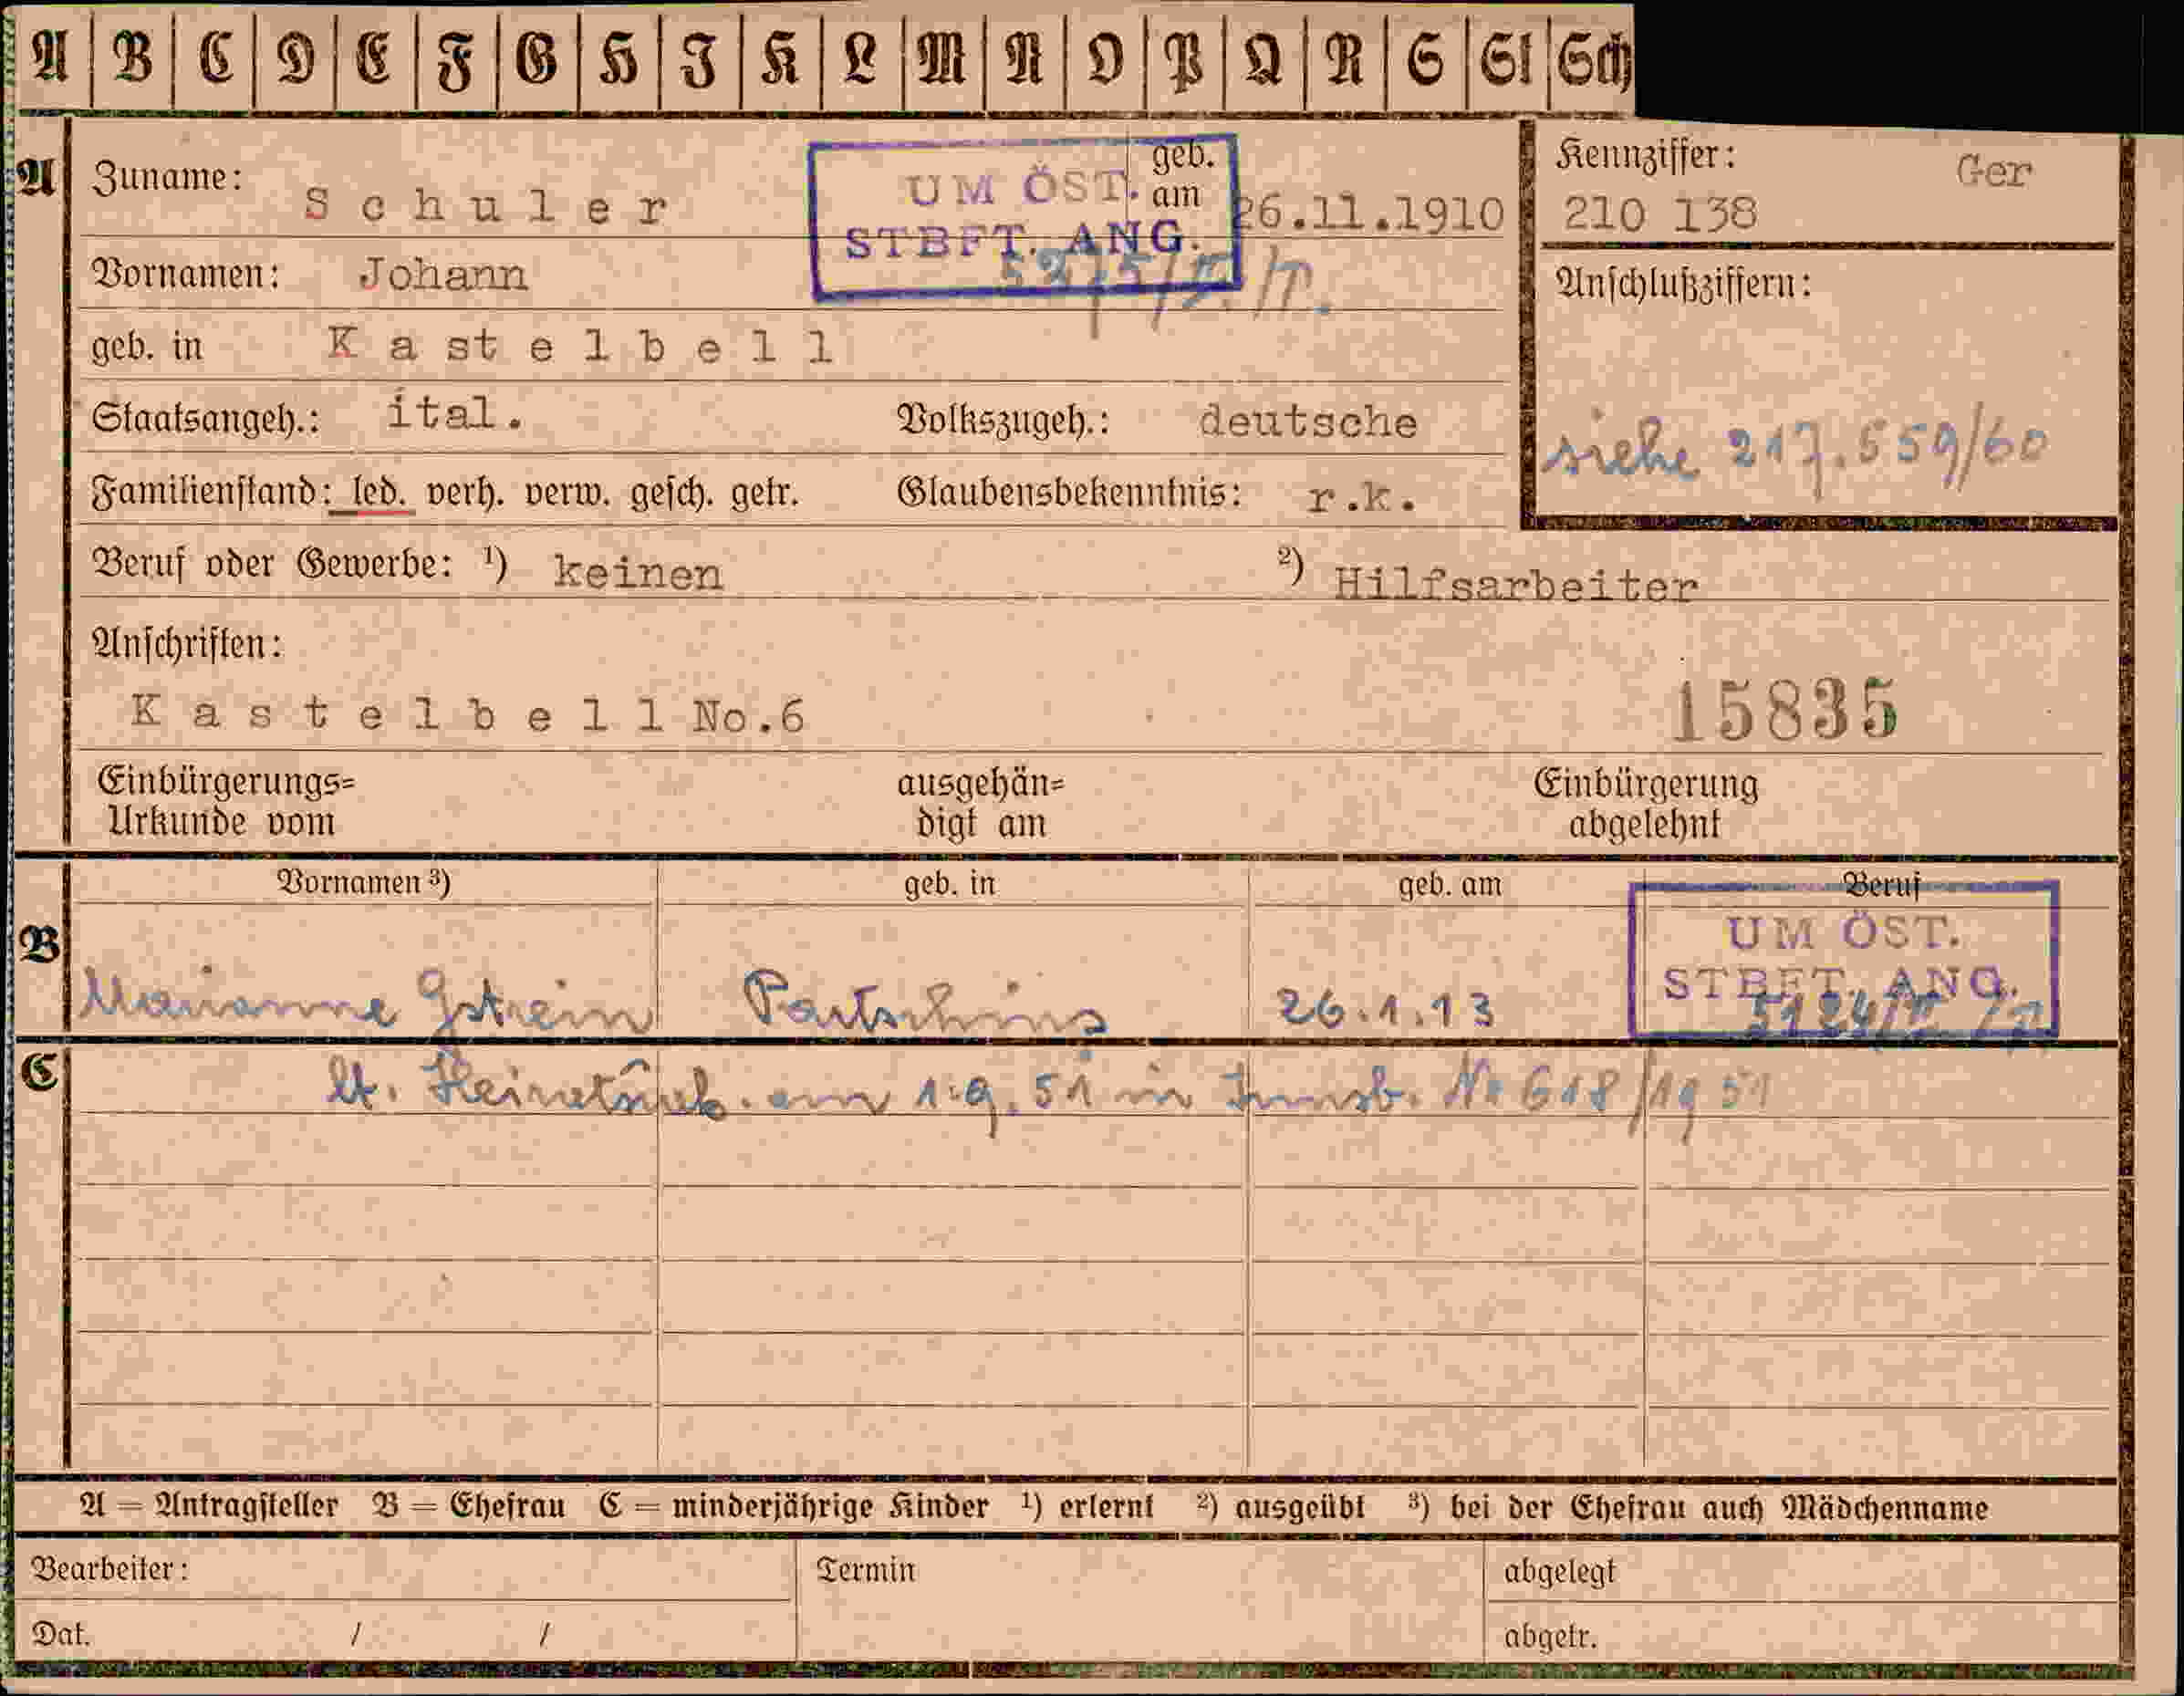 A B C D E F G H I K L M N O P Q R S St Sch
A Zuname: Schuler geb. am 26.11.1910
UM ÖST.
STBFT. ANG.
Kennziffer: Ger
210 138
Vornamen: Johann
Anschlußziffern:
geb. in Kastelbell
Staatsangeh.: ital. Volkszugeh.: deutsche
siehe 217.559/60
Familienstand: led. verh. verw. gesch. getr. Glaubensbekenntnis: r.k.
Beruf oder Gewerbe: ¹) keinen ²) Hilfsarbeiter
Anschriften:
Kastelbell No.6 15835
Einbürgerungs= ausgehän= Einbürgerung
Urkunde vom digt am abgelehnt
Vornamen ³) geb. in geb. am Beruf
UM ÖST.
STBFT. ANG.
B Marianne Gstrein Partschins 26.1.13
C lt. Heiratsurk. am 1.9.51 in Innsb. No 618/1951
A = Antragsteller B = Ehefrau C = minderjährige Kinder ¹) erlernt ²) ausgeübt ³) bei der Ehefrau auch Mädchenname
Bearbeiter: Termin abgelegt
Dat. / / abgetr.